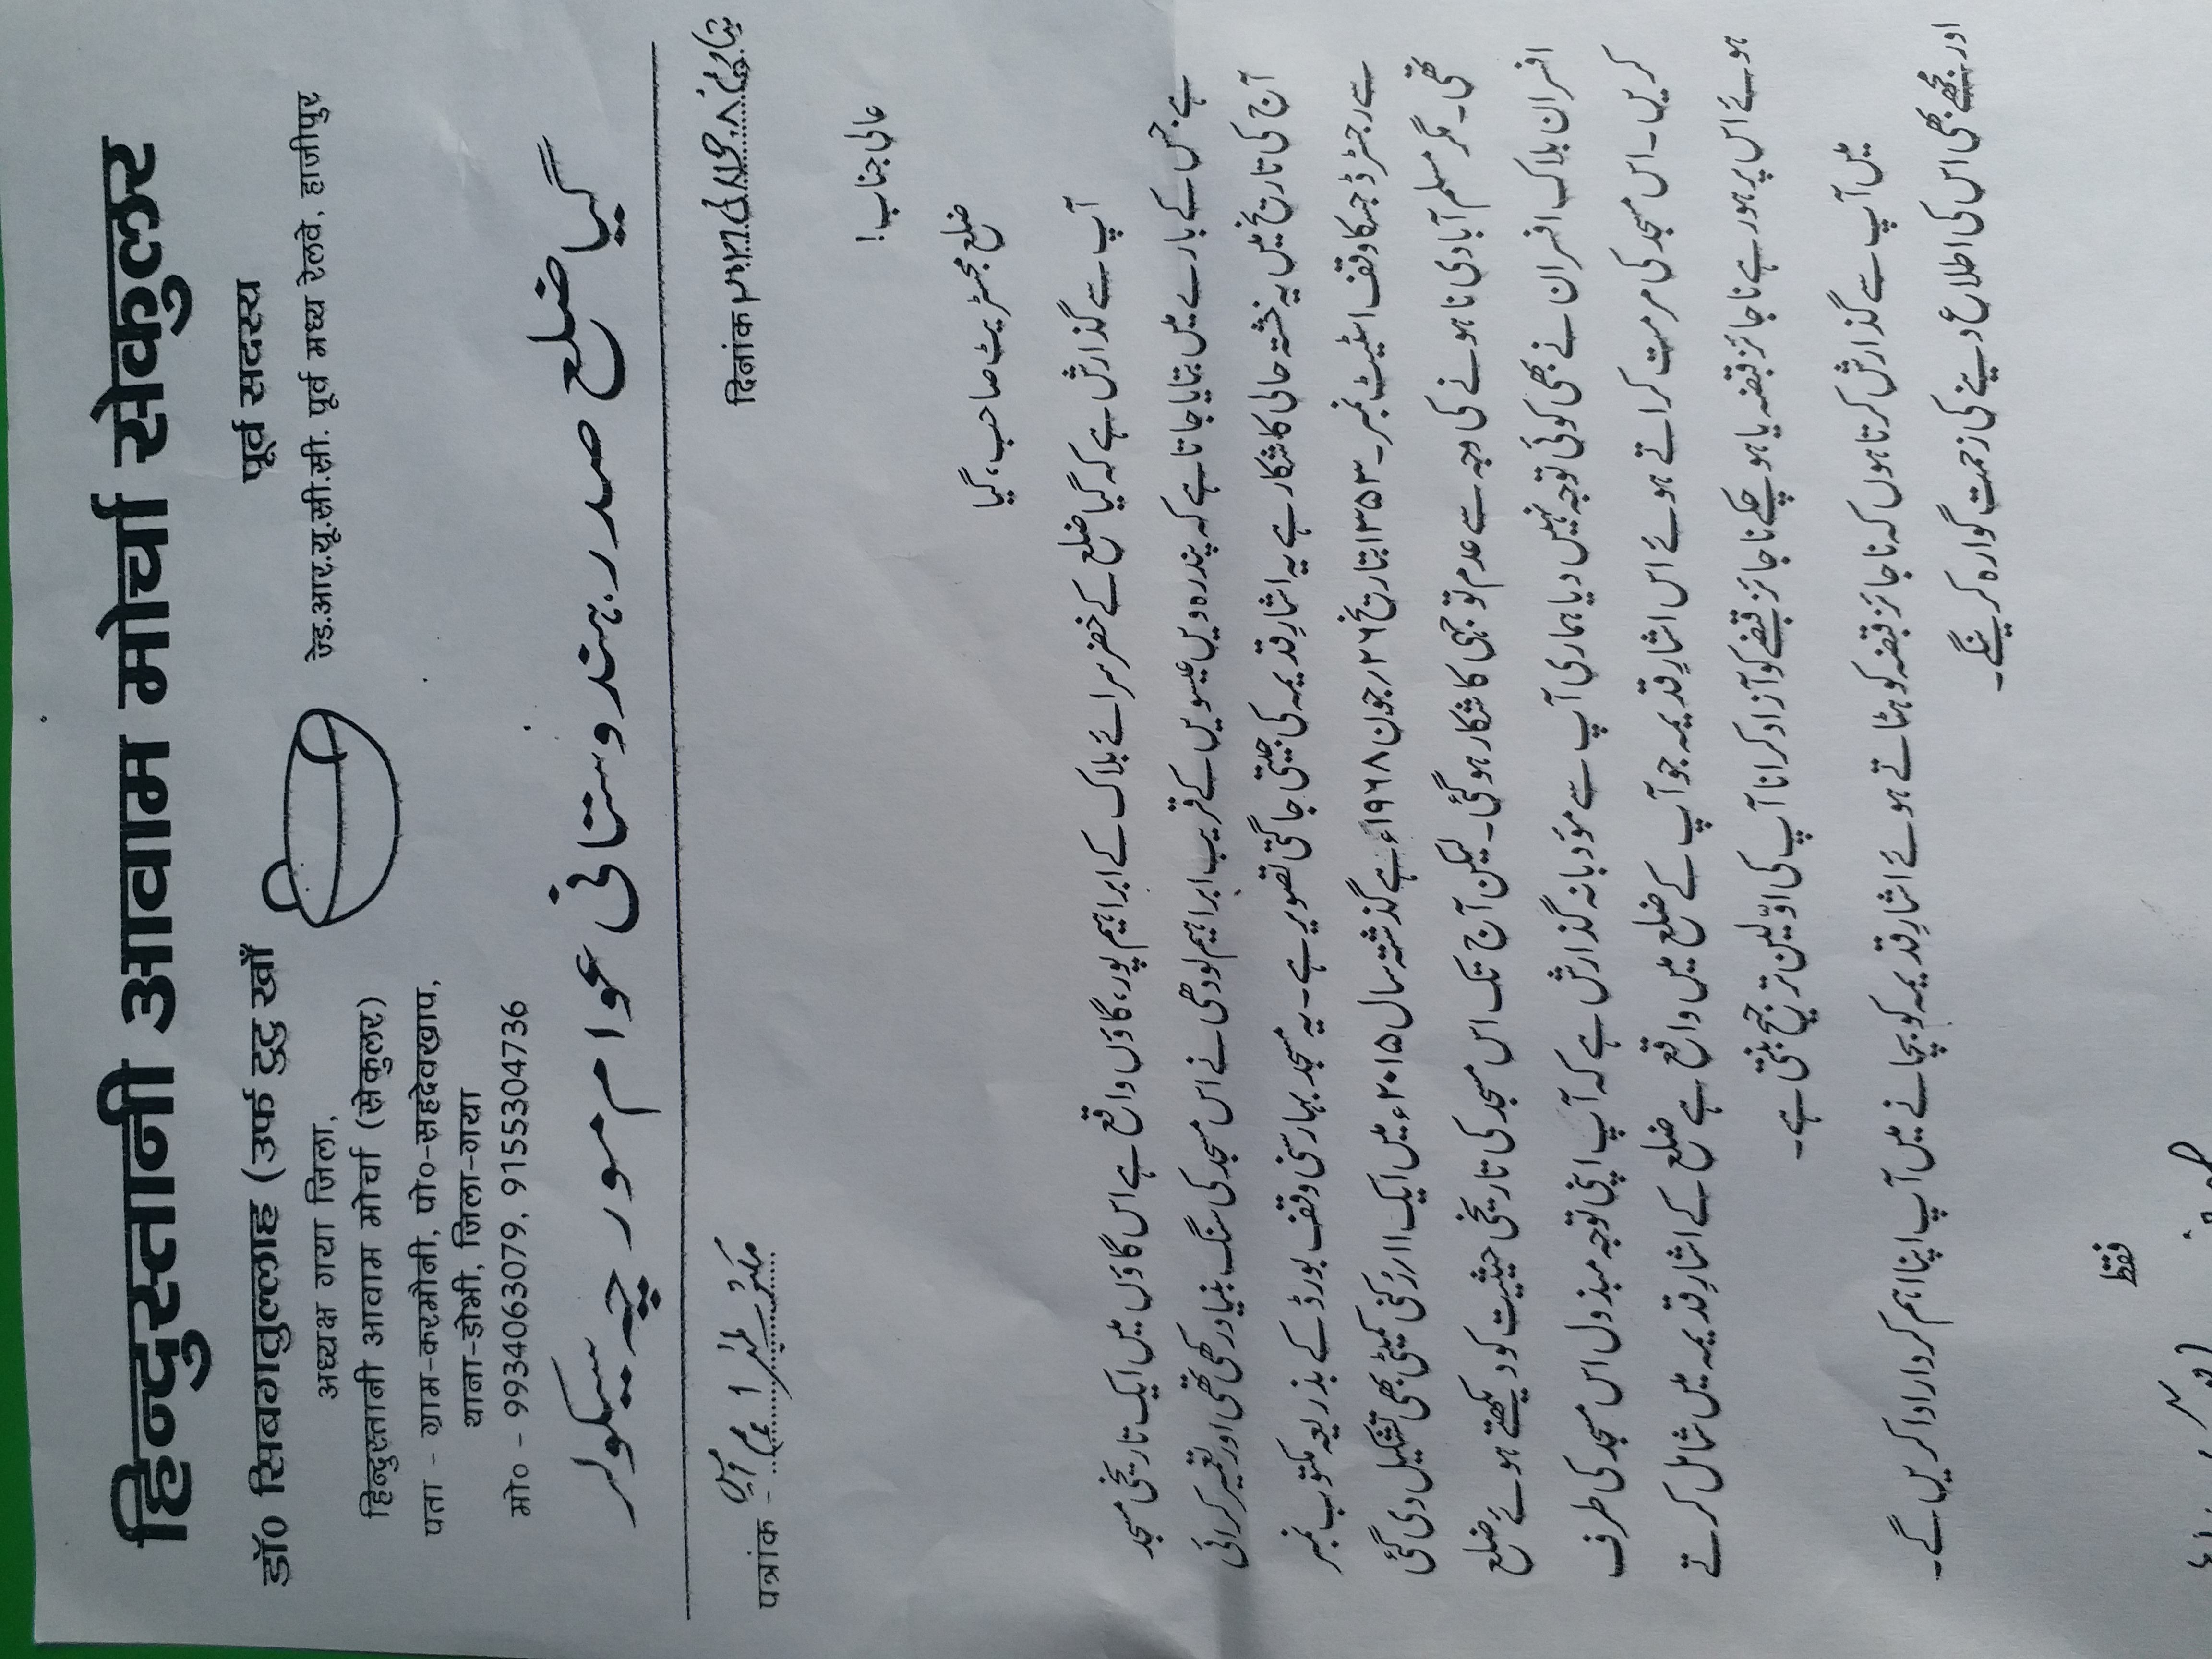 हिन्दुस्तानी आवाम मोर्चा सेकुलर
डॉ0 सिबगतुल्लाह (उर्फ टुटु खाँ
अध्यक्ष गया जिला,
हिन्दुस्तानी आवाम मोर्चा (सेकुलर)
पता - ग्राम-करमौनी, पो०-सहदेवखाप,
थाना-डोभी, जिला-गया
मो० - 9934063079, 9155304736
पूर्व सदस्य
ज्रेड.आर.यू.सी.सी. पूर्व मध्य रेलवे, हाजीपुर
گیا ضلع صدر ہندوستانی عوام مورچہ سیکولر
पत्रांक - مکتوب نمبر ۱
दिनांक بتاریخ ۸
عالی جناب!
ضلع مجسٹریٹ صاحب، گیا
آپ سے گذارش ہے کہ گیا ضلع کے خضر سرائے بلاک کے ابراہیم پور، گاؤں واقع ہے اس گاؤں میں ایک تاریخی مسجد
ہے جس کے بارے میں بتایا جاتا ہے کہ پندرہ ویں عیسویں کے قریب ابراہیم لودھی نے اس مسجد کی سنگ بنیاد رکھی تھی اور تعمیر کرائی
آج کی تاریخ میں یہ خشتہ حالی کا شکار ہے یہ اشارِ قدیمہ کی جیتی جاگتی تصویر ہے۔ یہ مسجد بہار سنی وقف بورڈ کے بذریعہ مکتوب نمبر
سے رجسٹرڈ جسکا وقف اسٹیٹ نمبر۔ ۱۳۵۳ بتاریخ ۲۶؍ جون ۱۹۶۸ء ہے گذشتہ سال ۲۰۱۵ء میں ایک ۱۱؍ رُکنی کمیٹی بھی تشکیل دی گئی
تھی۔ مگر مسلم آبادی نا ہونے کی وجہ سے عدم توجہی کا شکار ہوگئی۔ لیکن آج تک اس مسجد کی تاریخی حیثیت کو دیکھتے ہوئے ضلع
افسران بلاک افسران نے بھی کوئی توجہ نہیں دیا ہماری آپ سے مؤدبانہ گذارش ہے کہ آپ اپنی توجہ مبذول اس مسجد کی طرف
کریں۔ اس مسجد کی مرمت کراتے ہوئے اس اشارِ قدیمہ جو آپ کے ضلع میں واقع ہے ضلع کے اشارِ قدیمہ میں شامل کرتے
ہوئے اس پر ہور ہے ناجائز قبضہ یا ہو چکے ناجائز قبضے کو آزاد کرانا آپ کی اوّلین ترجیح بنتی ہے۔
میں آپ سے گذارش کرتا ہوں کہ ناجائز قبضہ کو ہٹاتے ہوئے اشارِ قدیمہ کو بچانے میں آپ اپنا اہم کردار ادا کریں گے۔
اور مجھے بھی اس کی اطلاع دینے کی زحمت گوارہ کرینگے۔
فقط